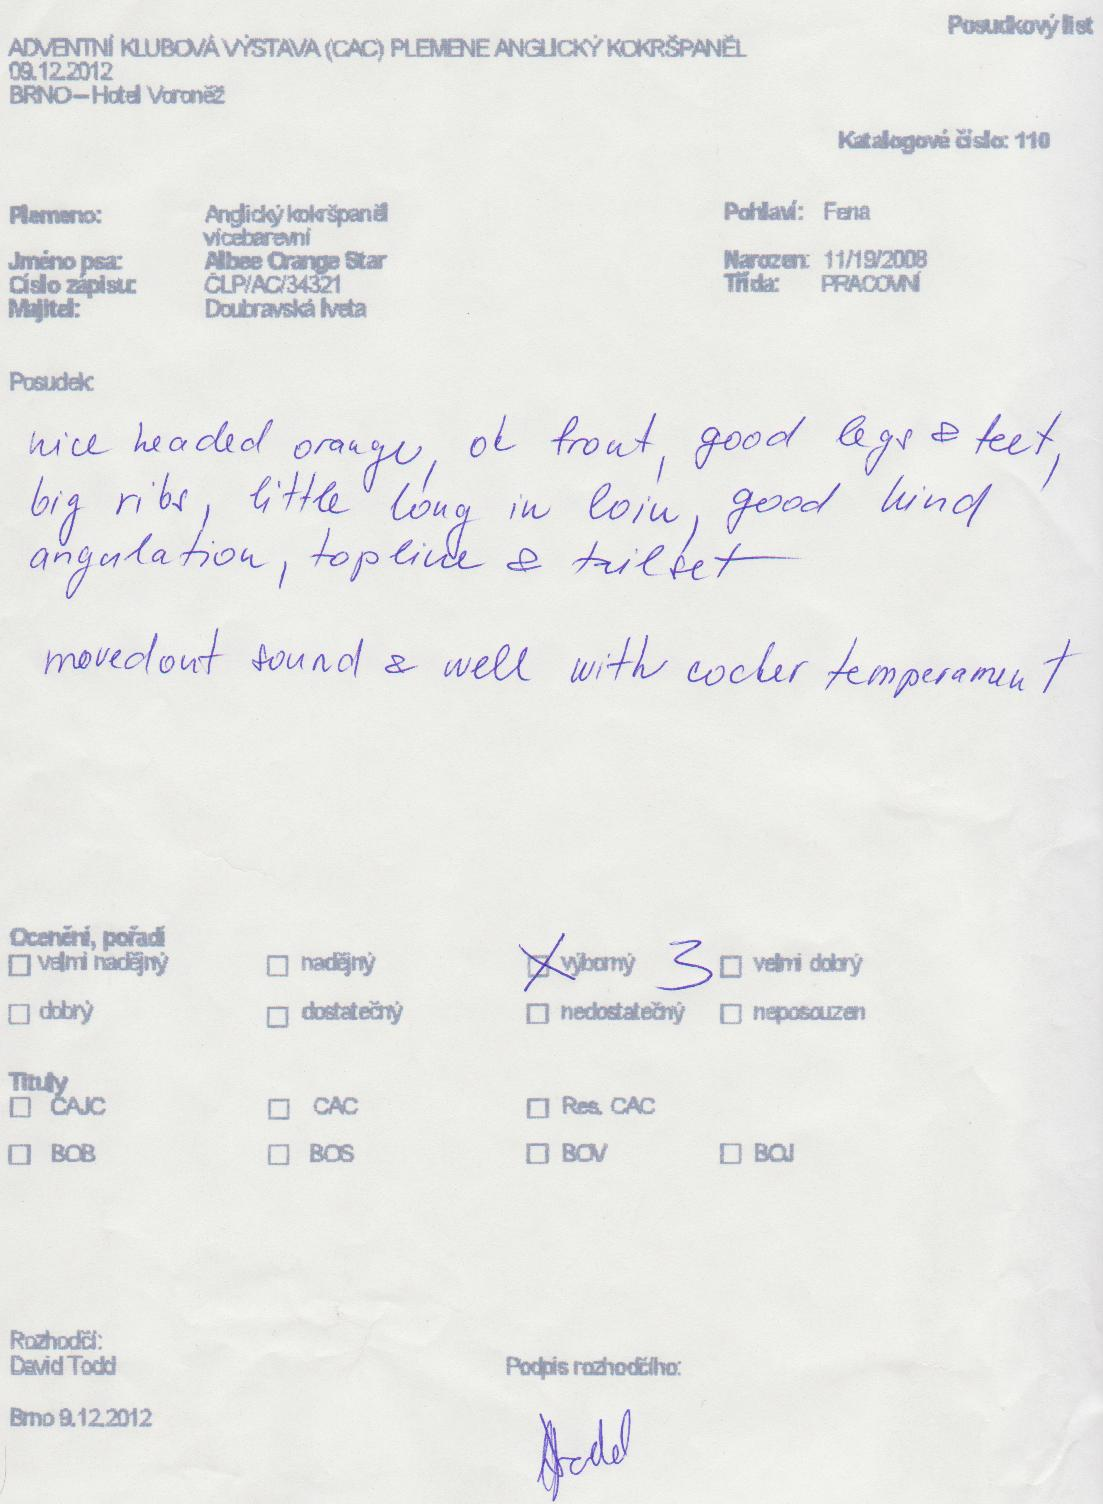 Posudkový list
ADVENTNÍ KLUBOVÁ VÝSTAVA (CAC) PLEMENE ANGLICKÝ KOKRŠPANĚL
09.12.2012
BRNO – Hotel Voroněž
Katalogové číslo: 110
Plemeno: Anglický kokršpaněl
vícebarevní
Pohlaví: Fena
Jméno psa: Albee Orange Star
Narozen: 11/19/2008
Číslo zápisu: ČLP/AC/34321
Třída: PRACOVNÍ
Majitel: Doubravská Iveta
Posudek:
nice headed orange, ok front, good legs & feet,
big ribs, little long in loin, good hind
angulation, topline & tailset
movedout sound & well with cocker temperament
Ocenění, pořadí
velmi nadějný nadějný výborný 3 velmi dobrý
dobrý dostatečný nedostatečný neposouzen
Tituly
CAJC CAC Res. CAC
BOB BOS BOV BOJ
Rozhodčí:
David Todd
Podpis rozhodčího:
Brno 9.12.2012